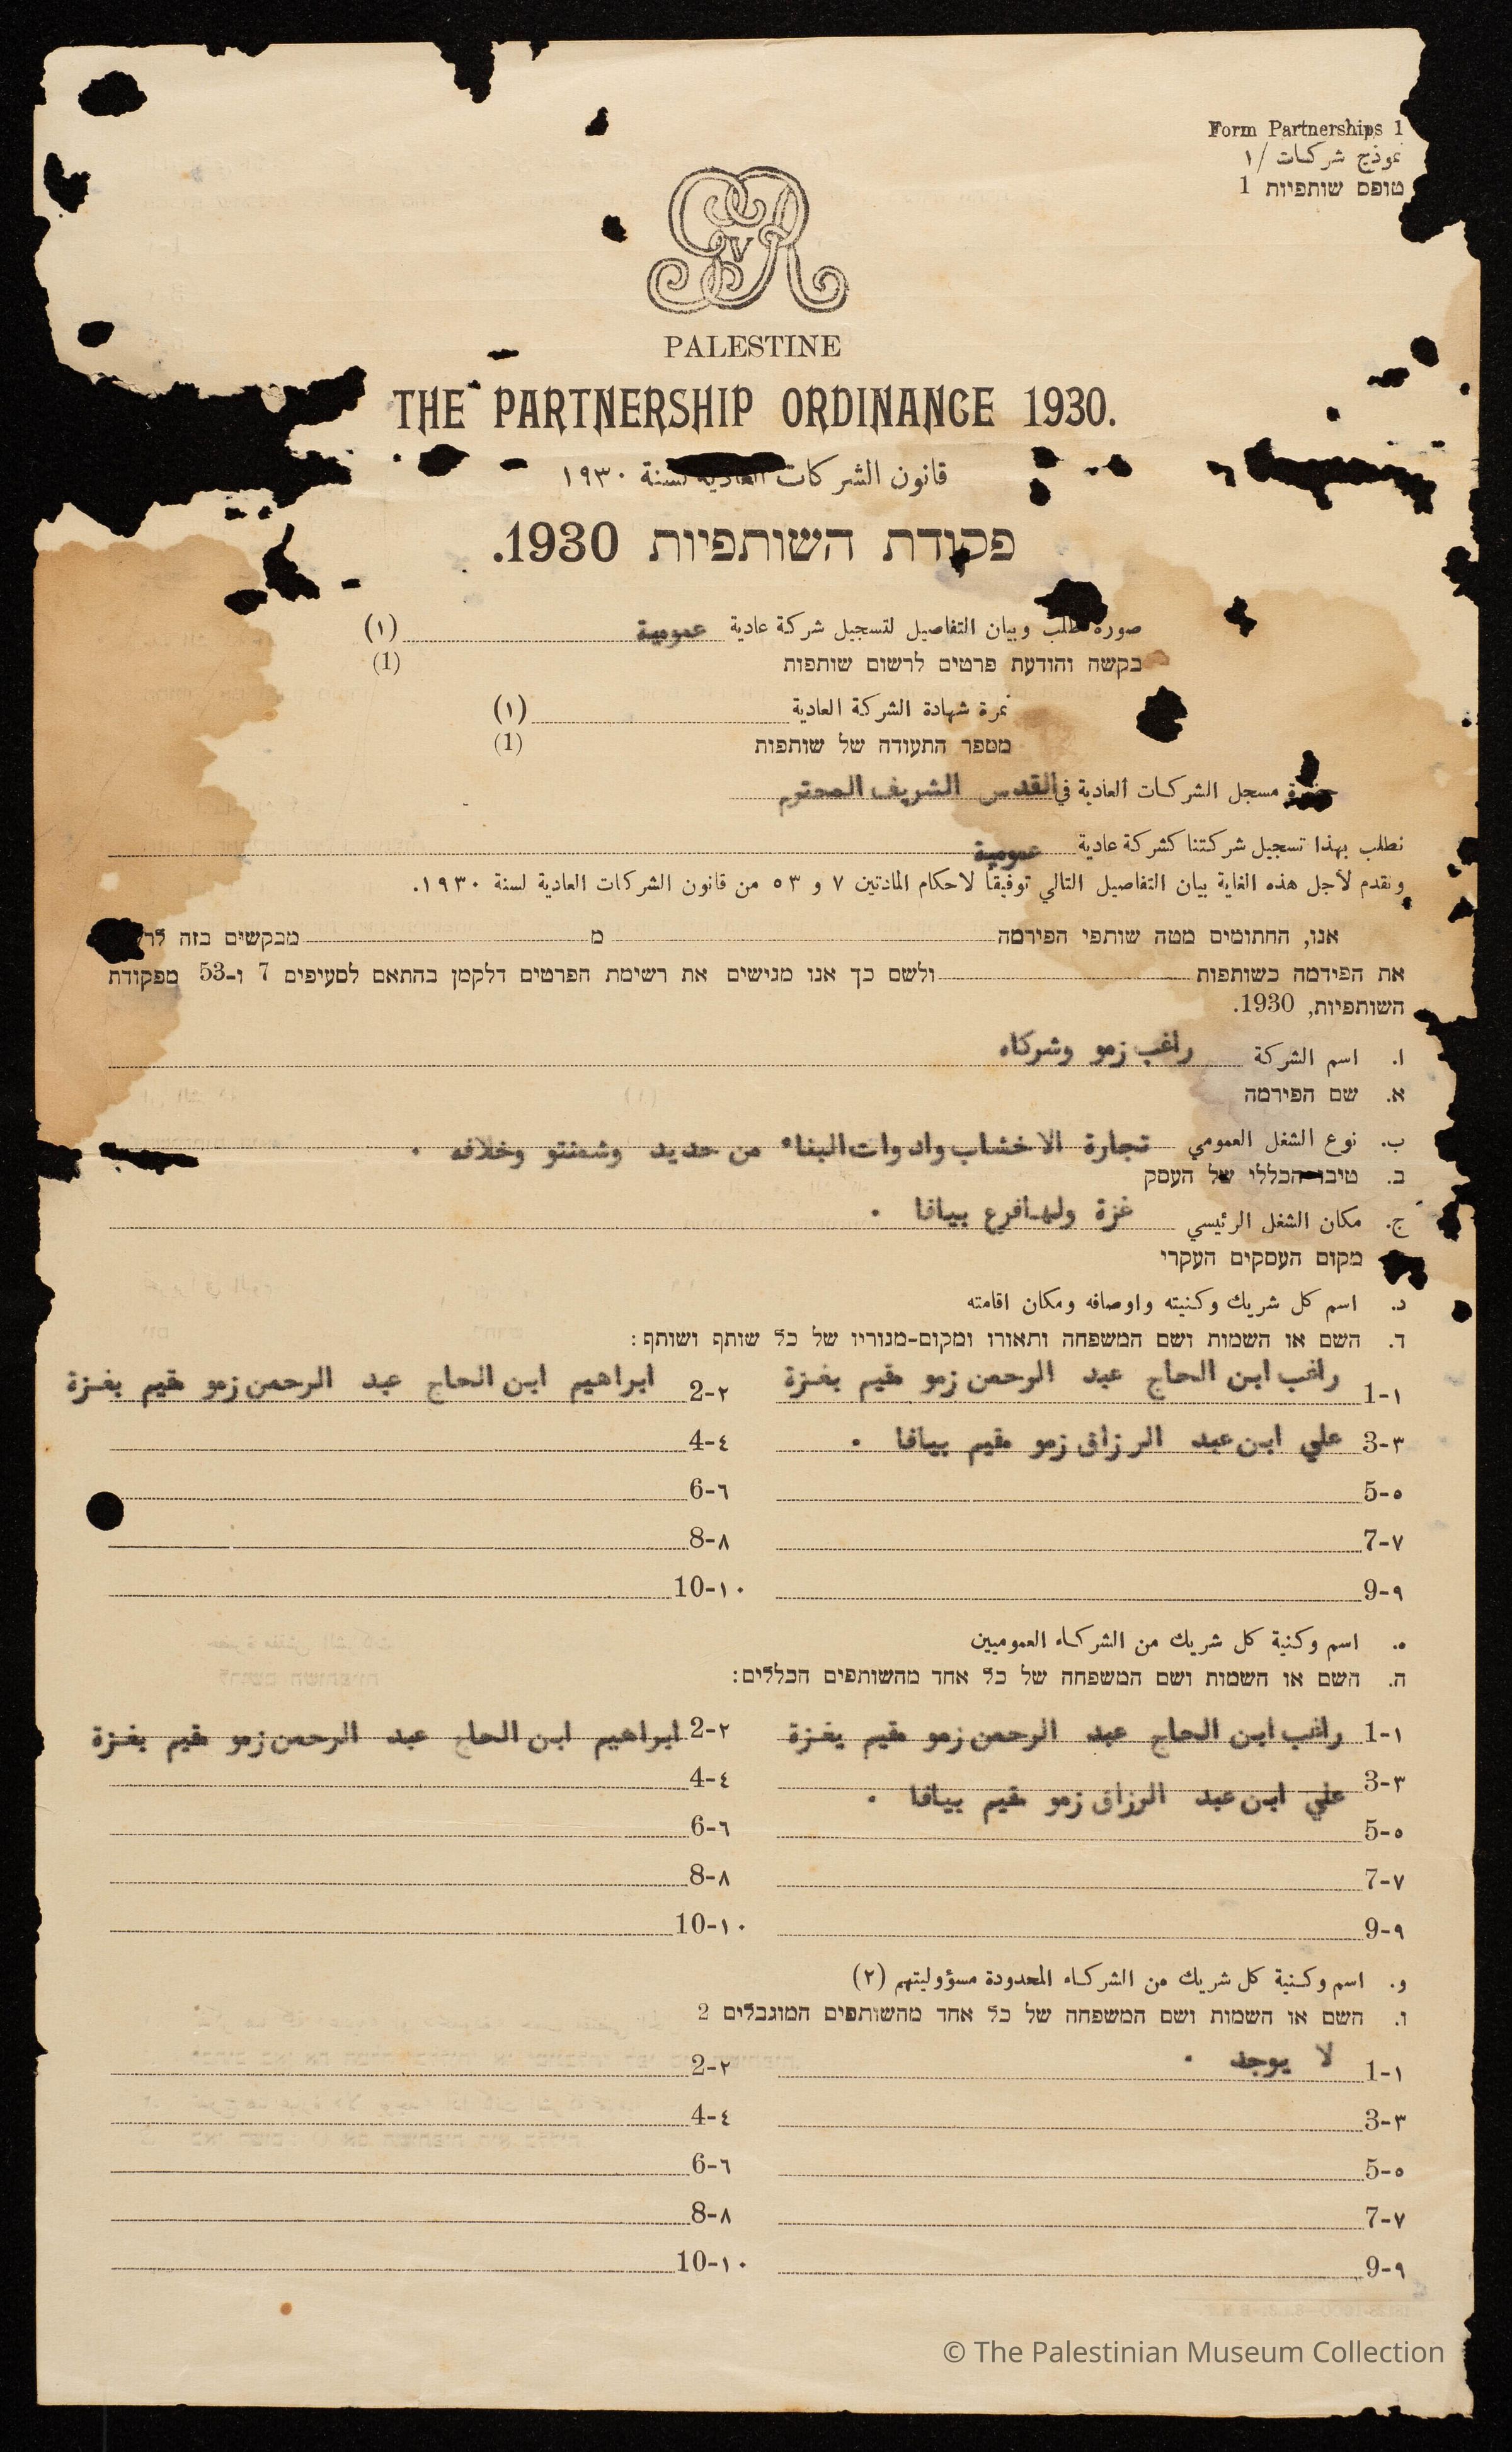 Form Partnerships 1
نموذج شركات /١
טופס שותפיות 1
GvR
PALESTINE
THE PARTNERSHIP ORDINANCE 1930.
قانون الشركات العادية لسنة ١٩٣٠
פקודת השותפיות 1930.
صورة طلب وبيان التفاصيل لتسجيل شركة عادية عمومية (١)
בקשה והודעת פרטים לרשום שותפות (1)
نمرة شهادة الشركة العادية (١)
מספר התעודה של שותפות (1)
حضرة مسجل الشركات العادية في القدس الشريف المحترم
نطلب بهذا تسجيل شركتنا كشركة عادية عمومية
ونقدم لأجل هذه الغاية بيان التفاصيل التالي توفيقاً لاحكام المادتين ٧ و ٥٣ من قانون الشركات العادية لسنة ١٩٣٠.
אנו, החתומים מטה שותפי הפירמה מ מבקשים בזה
את הפירמה כשותפות ולשם כך אנו מגישים את רשימת הפרטים דלקמן בהתאם לסעיפים 7 ו-53 מפקודת
השותפיות, 1930.
ا. اسم الشركة راغب زمو وشركاه
א. שם הפירמה
ب. نوع الشغل العمومي تجارة الاخشاب وادوات البناء من حديد وشمنتو وخلافه .
ב. טיבו הכללי של העסק
ج. مكان الشغل الرئيسي غزة ولها فرع بيافا .
מקום העסקים העקרי
د. اسم كل شريك وكنيته واوصافه ومكان اقامته
ד. השם או השמות ושם המשפחה ותאורו ומקום-מגוריו של כל שותף ושותף:
1-١ راغب ابن الحاج عبد الرحمن زمو مقيم بغزة 2-٢ ابراهيم ابن الحاج عبد الرحمن زمو مقيم بغزة
3-٣ علي ابن عبد الرزاق زمو مقيم بيافا . 4-٤
5-٥ 6-٦
7-٧ 8-٨
9-٩ 10-١٠
ه. اسم وكنية كل شريك من الشركاء العموميين
ה. השם או השמות ושם המשפחה של כל אחד מהשותפים הכללים:
1-١ راغب ابن الحاج عبد الرحمن زمو مقيم بغزة 2-٢ ابراهيم ابن الحاج عبد الرحمن زمو مقيم بغزة
3-٣ علي ابن عبد الرزاق زمو مقيم بيافا . 4-٤
5-٥ 6-٦
7-٧ 8-٨
9-٩ 10-١٠
و. اسم وكنية كل شريك من الشركاء المحدودة مسؤوليتهم (٢)
ו. השם או השמות ושם המשפחה של כל אחד מהשותפים המוגבלים 2
1-١ لا يوجد . 2-٢
3-٣ 4-٤
5-٥ 6-٦
7-٧ 8-٨
9-٩ 10-١٠
© The Palestinian Museum Collection